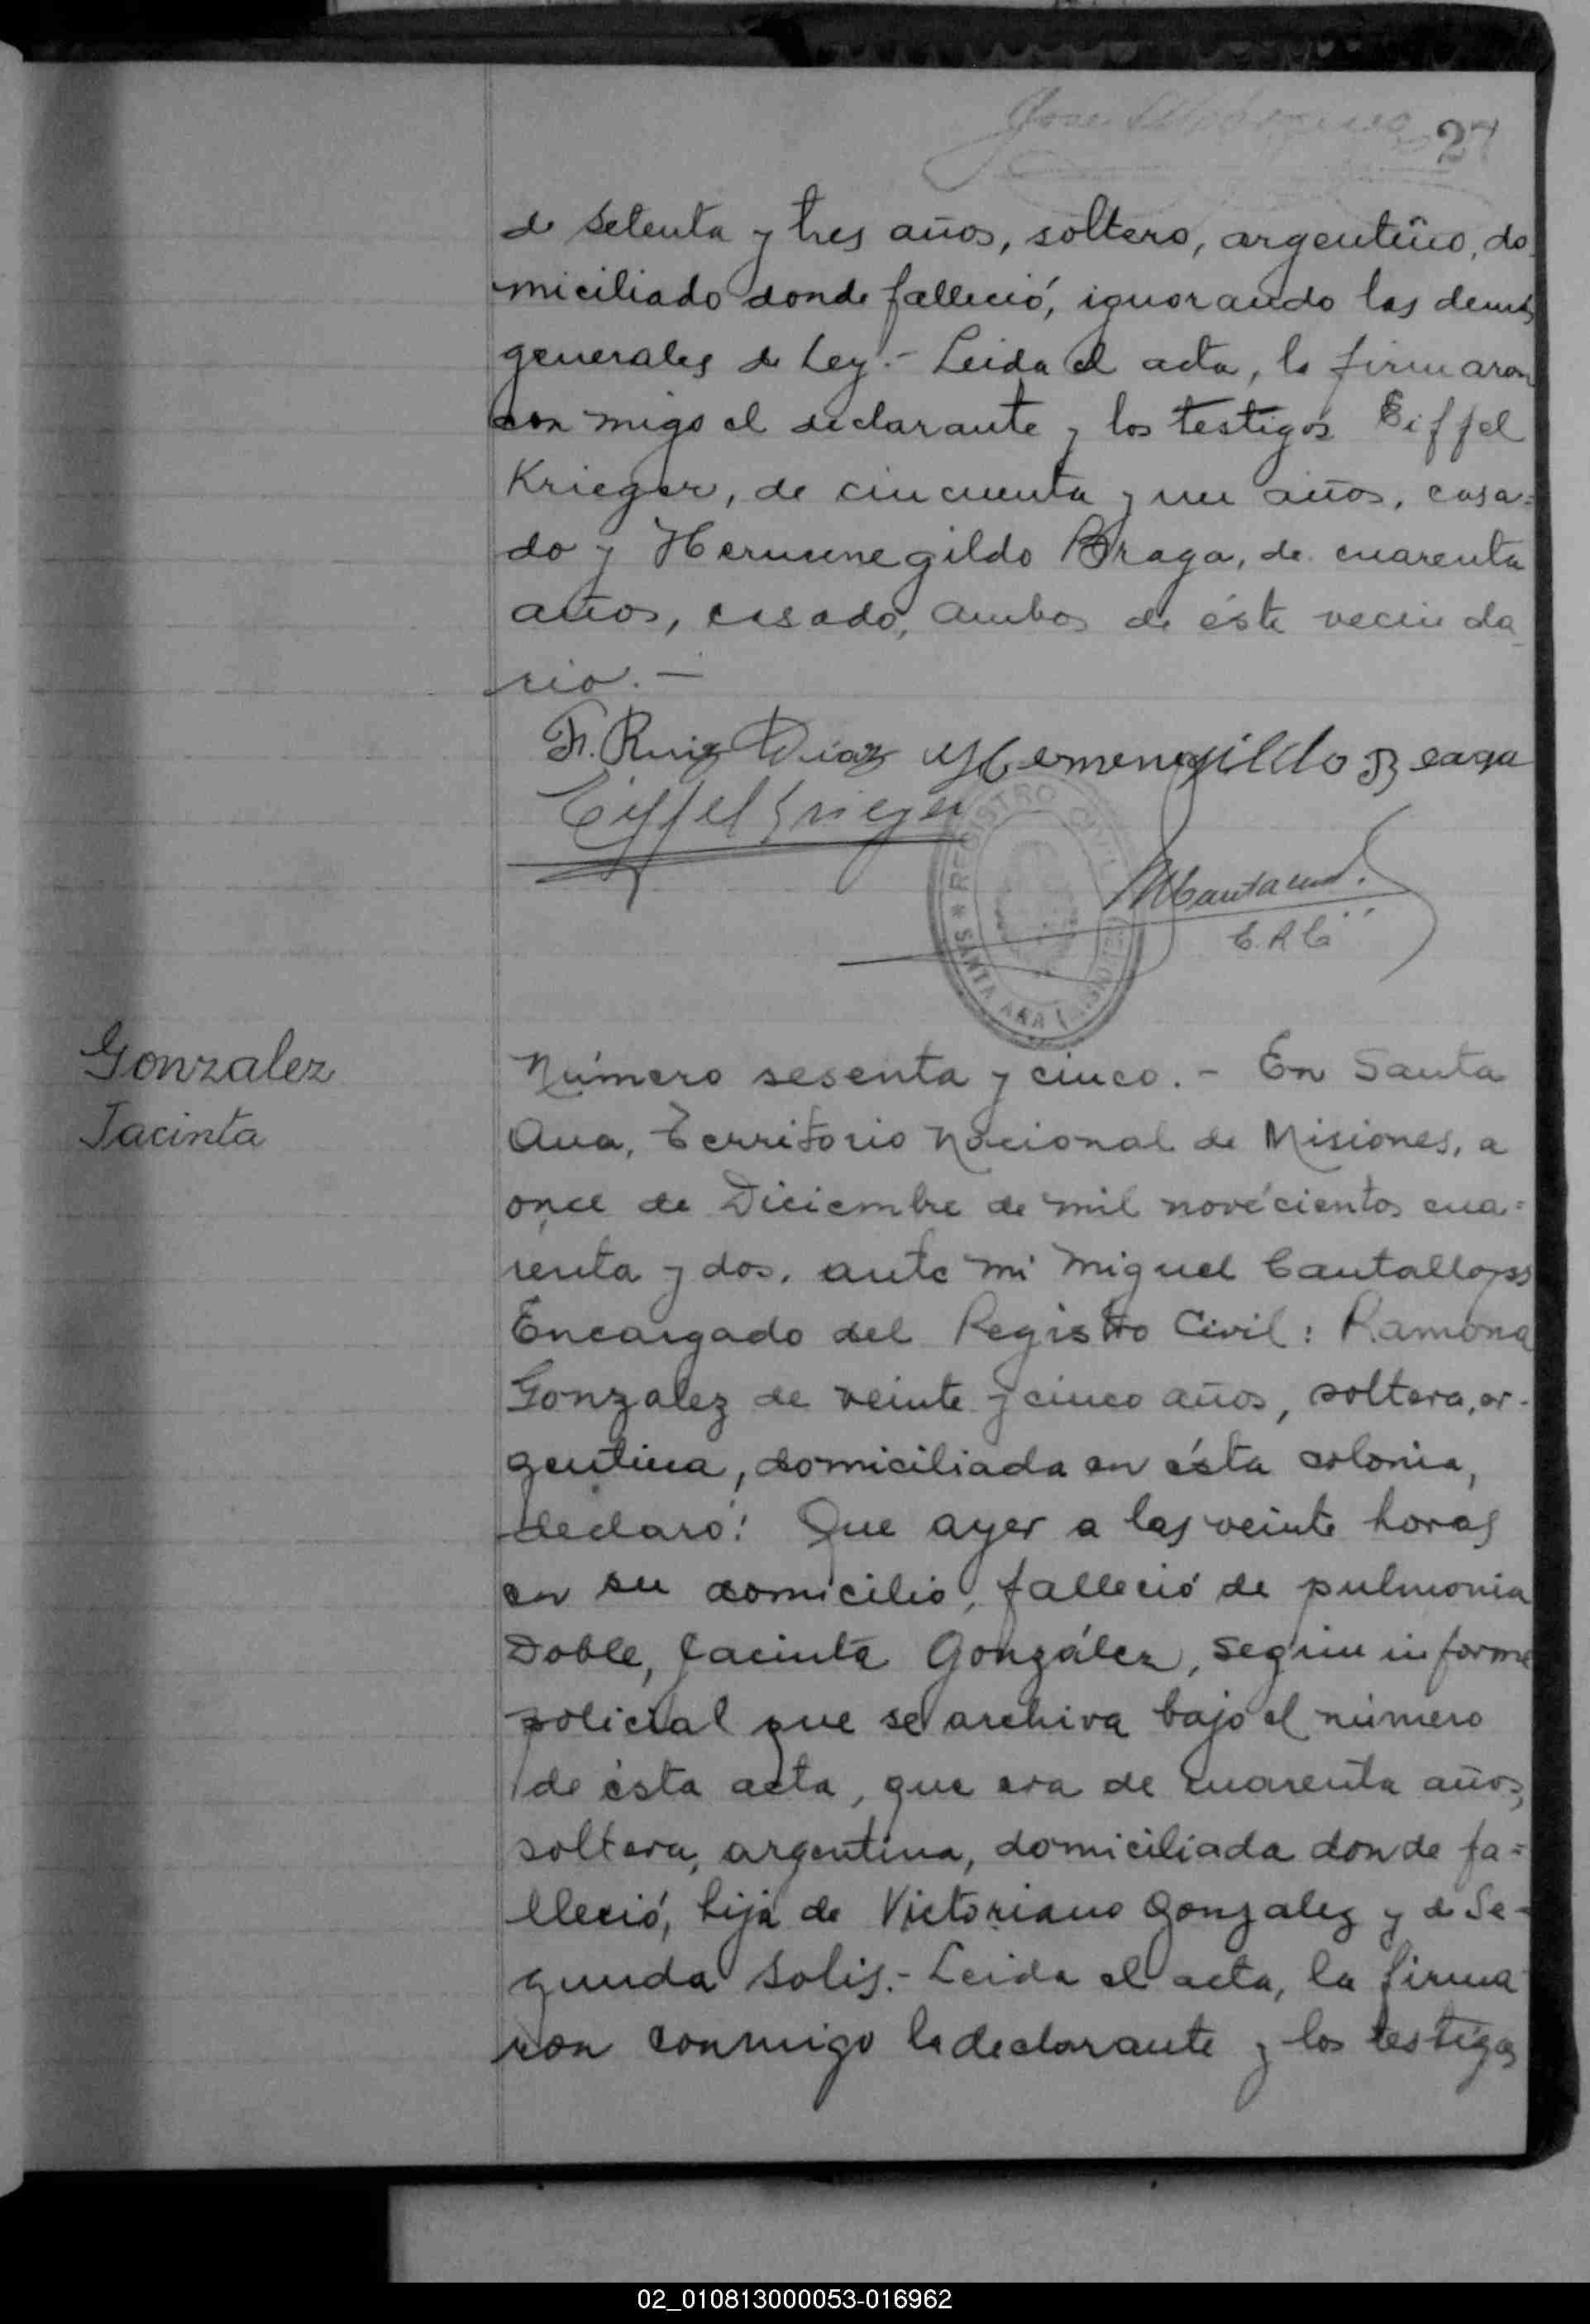 27
de setenta y tres años, soltero, argentino, do
miciliado donde falleció, ignorando las demás
generales de Ley.- Leida el acta, la firmaron
con migo el declarante y los testigos Eiffel
Krieger, de cincuenta y un años, casa=
do y Hermenegildo Braga, de cuarenta
años, casado, ambos de éste vecinda
rio.-
F. Ruiz Diaz Hermenegildo Braga
Eiffel Krieger
REGISTRO CIVIL
* SANTA ANA (MISIONES)
E.R.C.
Gonzalez
Jacinta
Número sesenta y cinco.- En Santa
Ana, Territorio Nacional de Misiones, a
once de Diciembre de mil novecientos cua=
renta y dos, ante mi Miguel Cantallops
Encargado del Registro Civil: Ramona
Gonzalez de veinte y cinco años, soltera, ar-
gentina, domiciliada en ésta colonia,
declaró: Que ayer a las veinte horas
en su domicilio, falleció de pulmonia
Doble, Jacinta González, según informe
policial que se archiva bajo el número
de ésta acta, que era de cuarenta años,
soltera, argentina, domiciliada donde fa=
lleció, hija de Victoriano Gonzalez y de Se-
gunda Solis.- Leida el acta, la firma
ron conmigo la declarante y los testigos
02_010813000053-016962